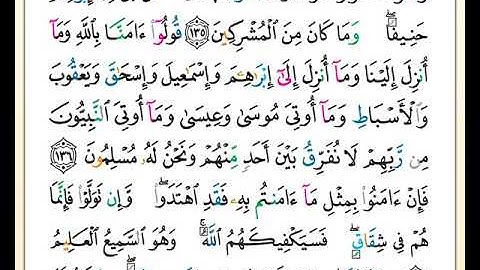 حَنِيفًا ۖ وَمَا كَانَ مِنَ الْمُشْرِكِينَ ١٣٥ قُولُوٓا۟ ءَامَنَّا بِٱللَّهِ وَمَآ
أُنزِلَ إِلَيْنَا وَمَآ أُنزِلَ إِلَىٰٓ إِبْرَٰهِـۧمَ وَإِسْمَٰعِيلَ وَإِسْحَٰقَ وَيَعْقُوبَ
وَٱلْأَسْبَاطِ وَمَآ أُوتِىَ مُوسَىٰ وَعِيسَىٰ وَمَآ أُوتِىَ ٱلنَّبِيُّونَ
مِن رَّبِّهِمْ لَا نُفَرِّقُ بَيْنَ أَحَدٍ مِّنْهُمْ وَنَحْنُ لَهُۥ مُسْلِمُونَ ١٣٦
فَإِنْ ءَامَنُوا۟ بِمِثْلِ مَآ ءَامَنتُم بِهِۦ فَقَدِ ٱهْتَدَوا۟ ۖ وَّإِن تَوَلَّوْا۟ فَإِنَّمَا
هُمْ فِى شِقَاقٍ ۖ فَسَيَكْفِيكَهُمُ ٱللَّهُ ۚ وَهُوَ ٱلسَّمِيعُ ٱلْعَلِيمُ